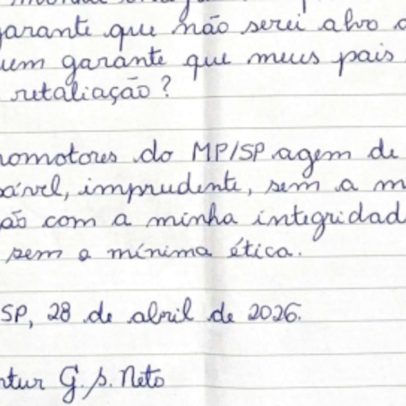 garante que não serei alvo
um garante que meus pais
retaliação?
romotores do MP/SP agem de
sável, imprudente, sem a m
ão com a minha integridad
sem a mínima ética.
SP, 28 de abril de 2026.
rtur G. S. Neto